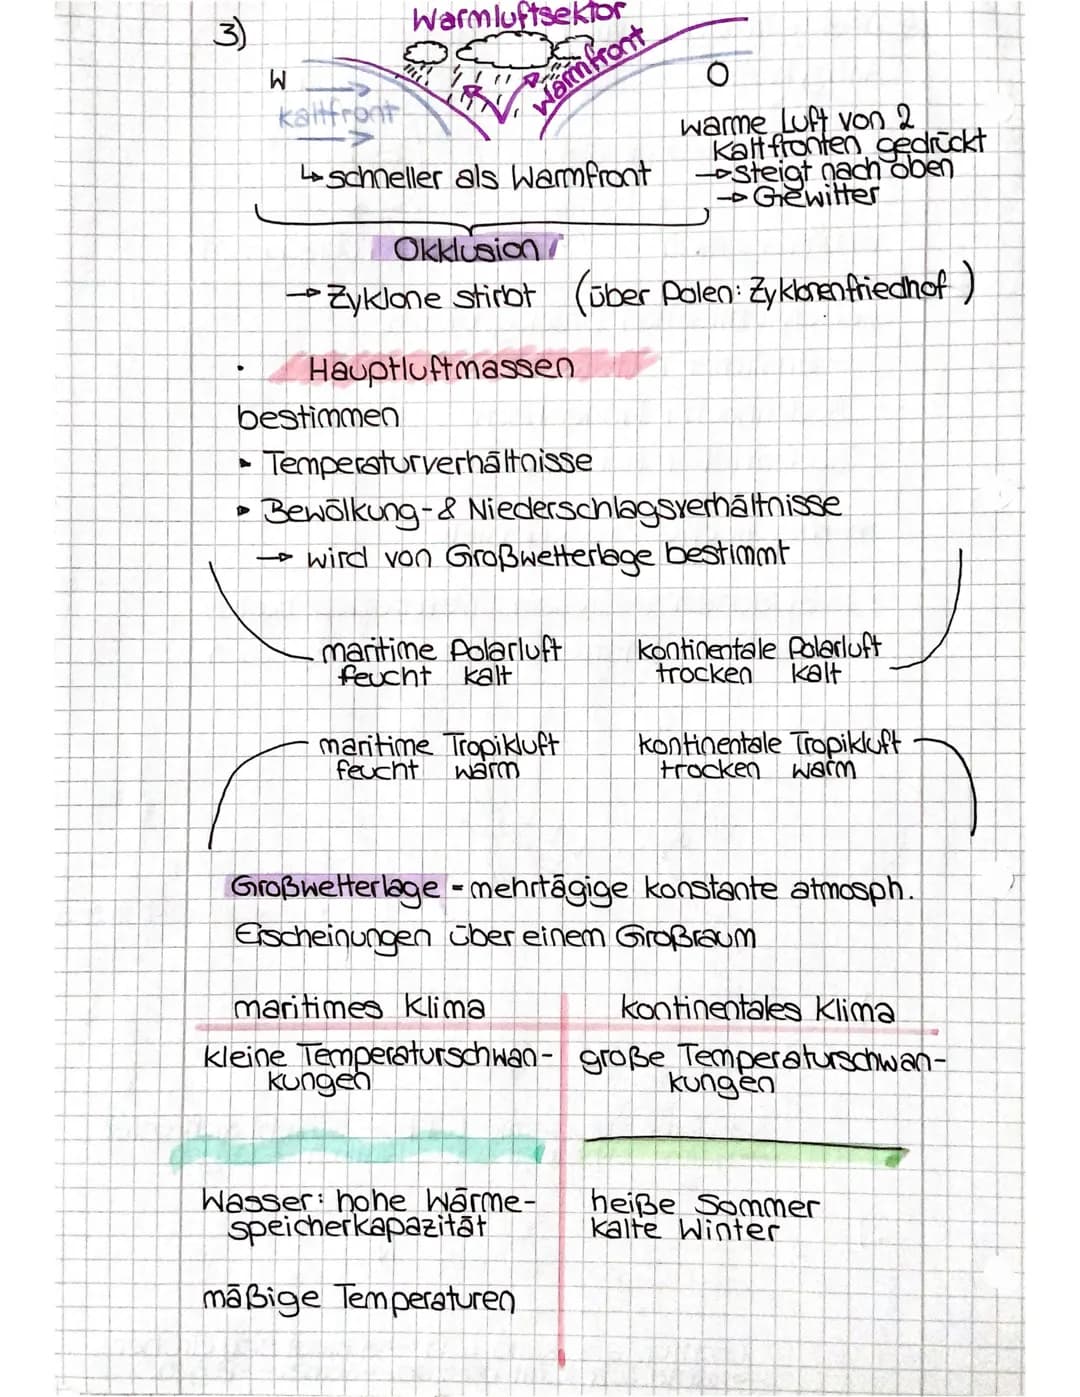 3)
Warmluftsektor
Warmfront
W
O
Kaltfront
warme Luft von 2
Kaltfronten gedrückt
→ steigt nach oben
→ Gewitter
↳ schneller als Warmfront
Okklusion
→ Zyklone stirbt (über Polen: Zyklonenfriedhof)
• Hauptluftmassen
bestimmen
▸ Temperaturverhältnisse
▸ Bewölkung- & Niederschlagsverhältnisse
→ wird von Großwetterlage bestimmt
maritime Polarluft
feucht kalt
kontinentale Polarluft
trocken kalt
maritime Tropikluft
feucht warm
kontinentale Tropikluft
trocken warm
Großwetterlage - mehrtägige konstante atmosph.
Erscheinungen über einem Großraum
maritimes Klima
kleine Temperaturschwan-
kungen
Wasser: hohe Wärme-
speicherkapazität
mäßige Temperaturen
kontinentales Klima
große Temperaturschwan-
kungen
heiße Sommer
kalte Winter